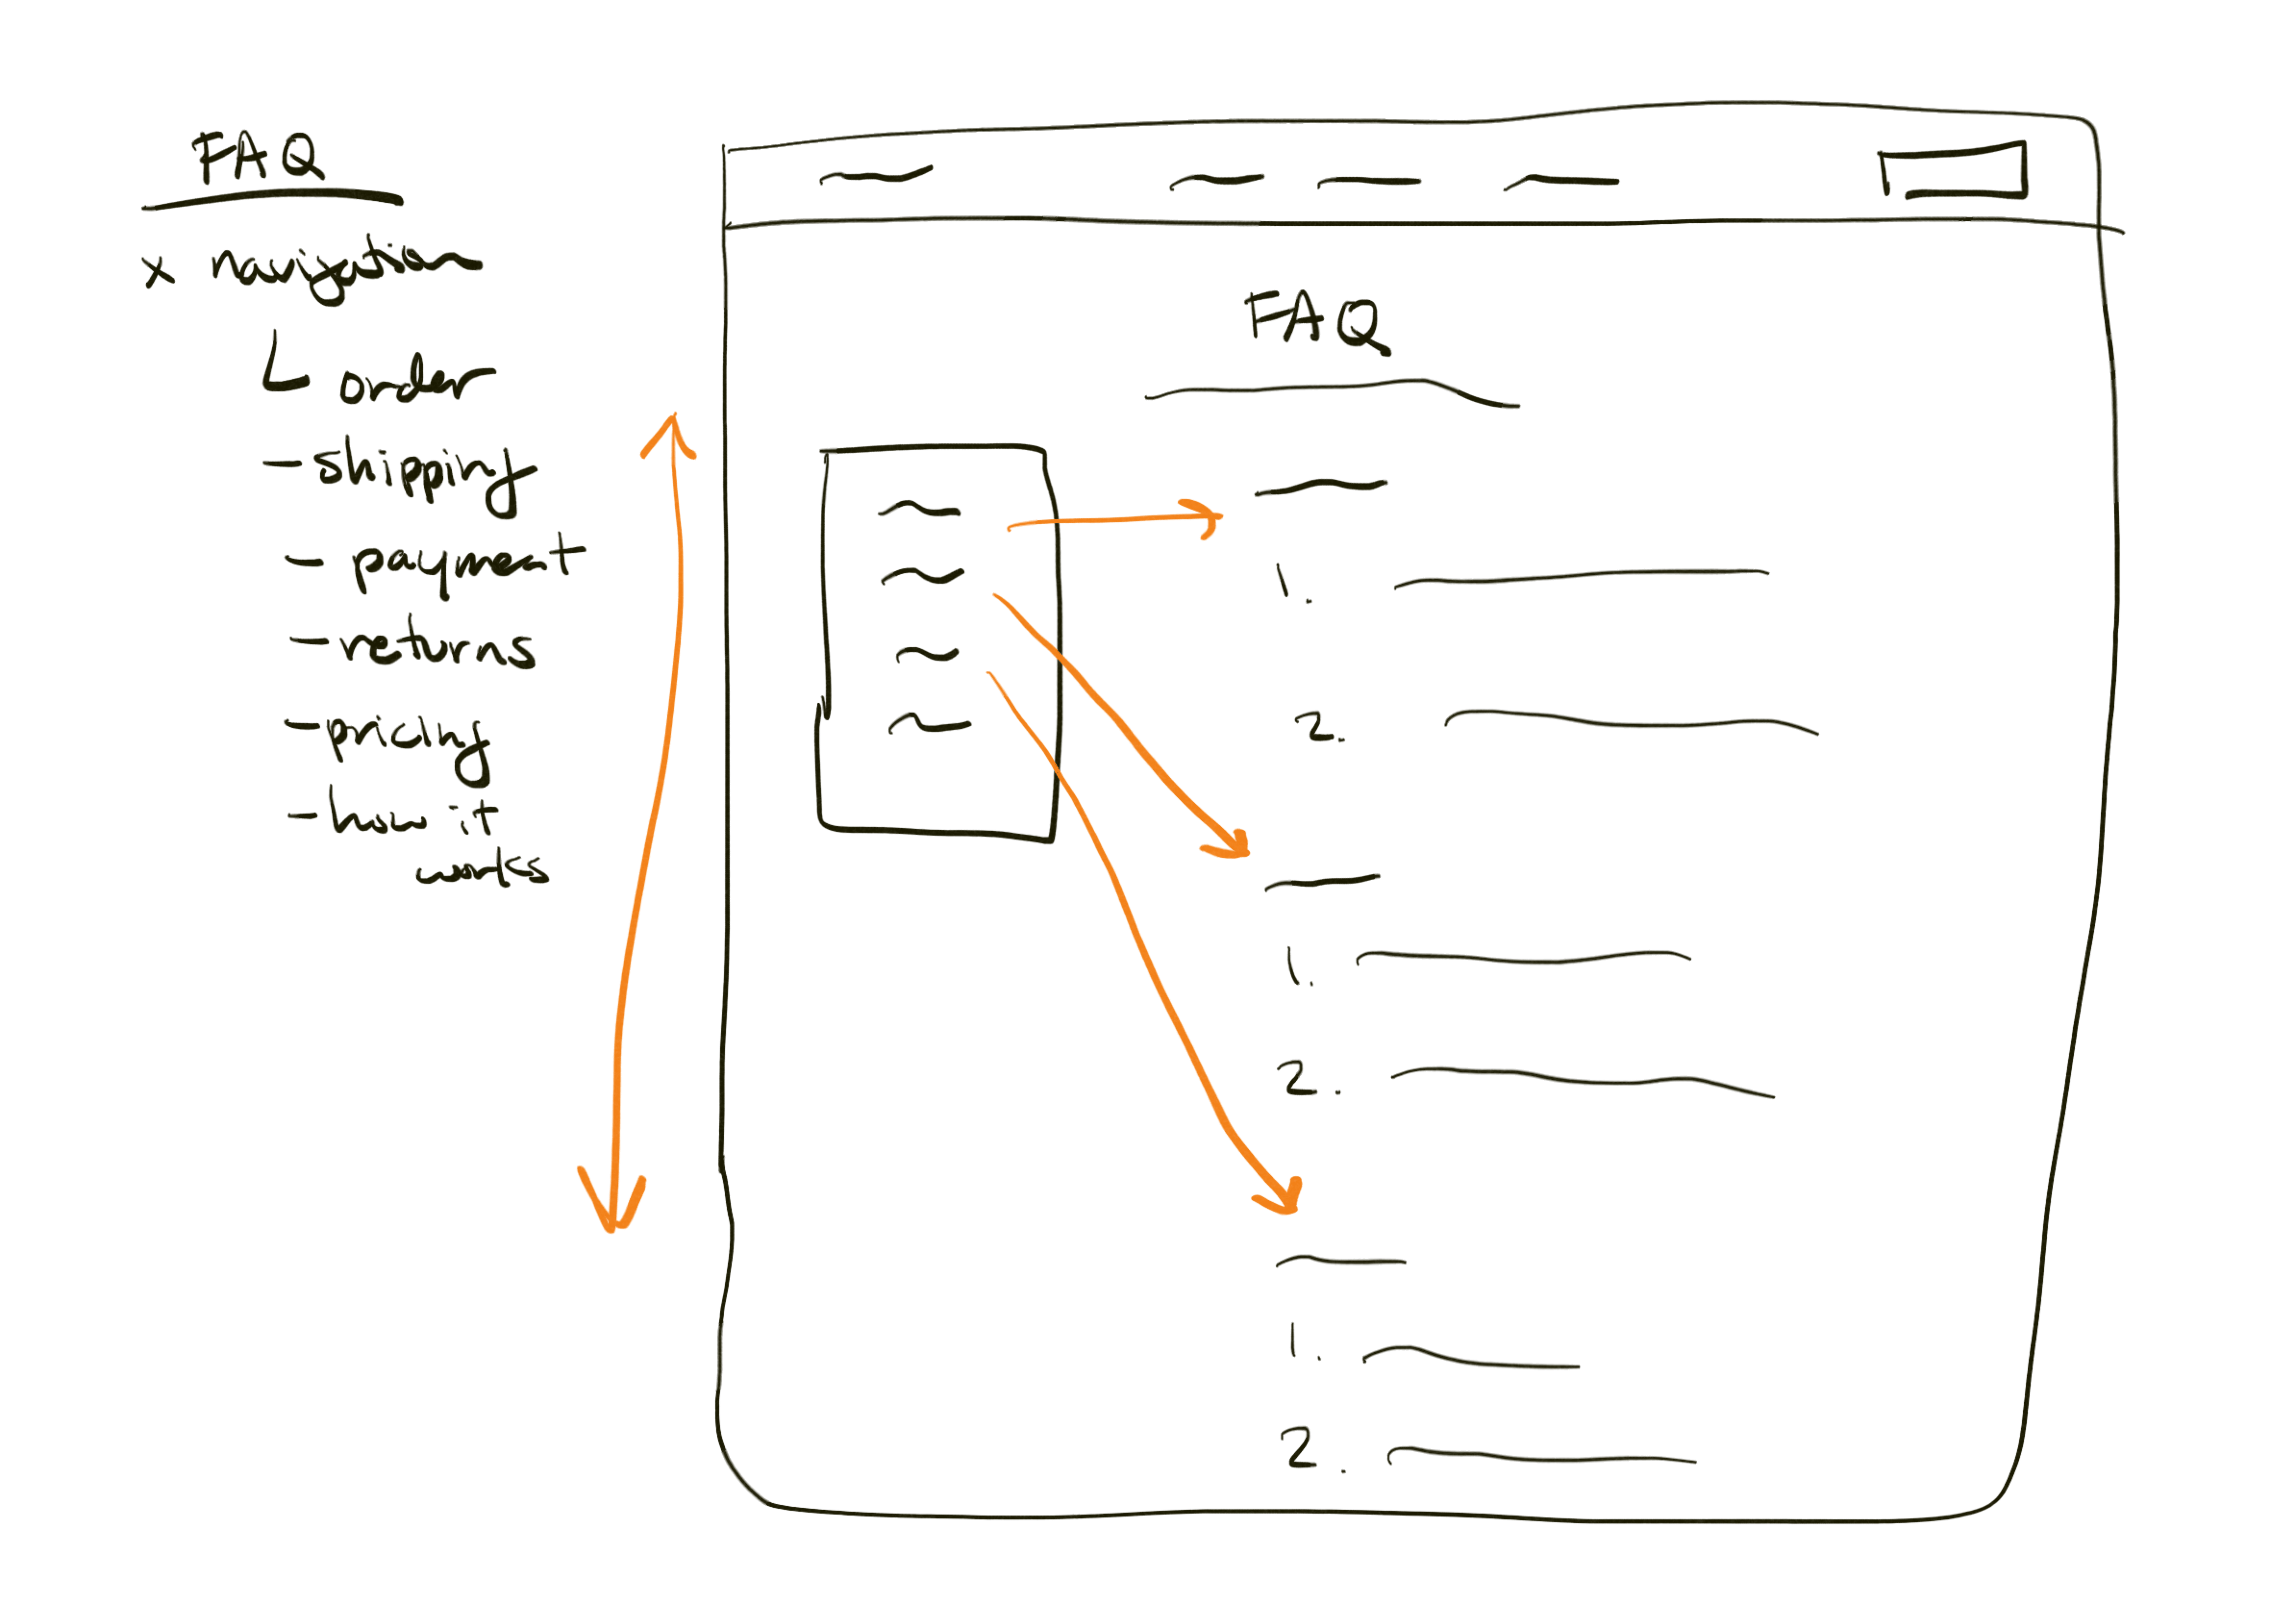 FAQ
x navigation
order
- shipping
- payment
- returns
- pricing
- how it
works
FAQ
1.
2.
1.
2.
1.
2.